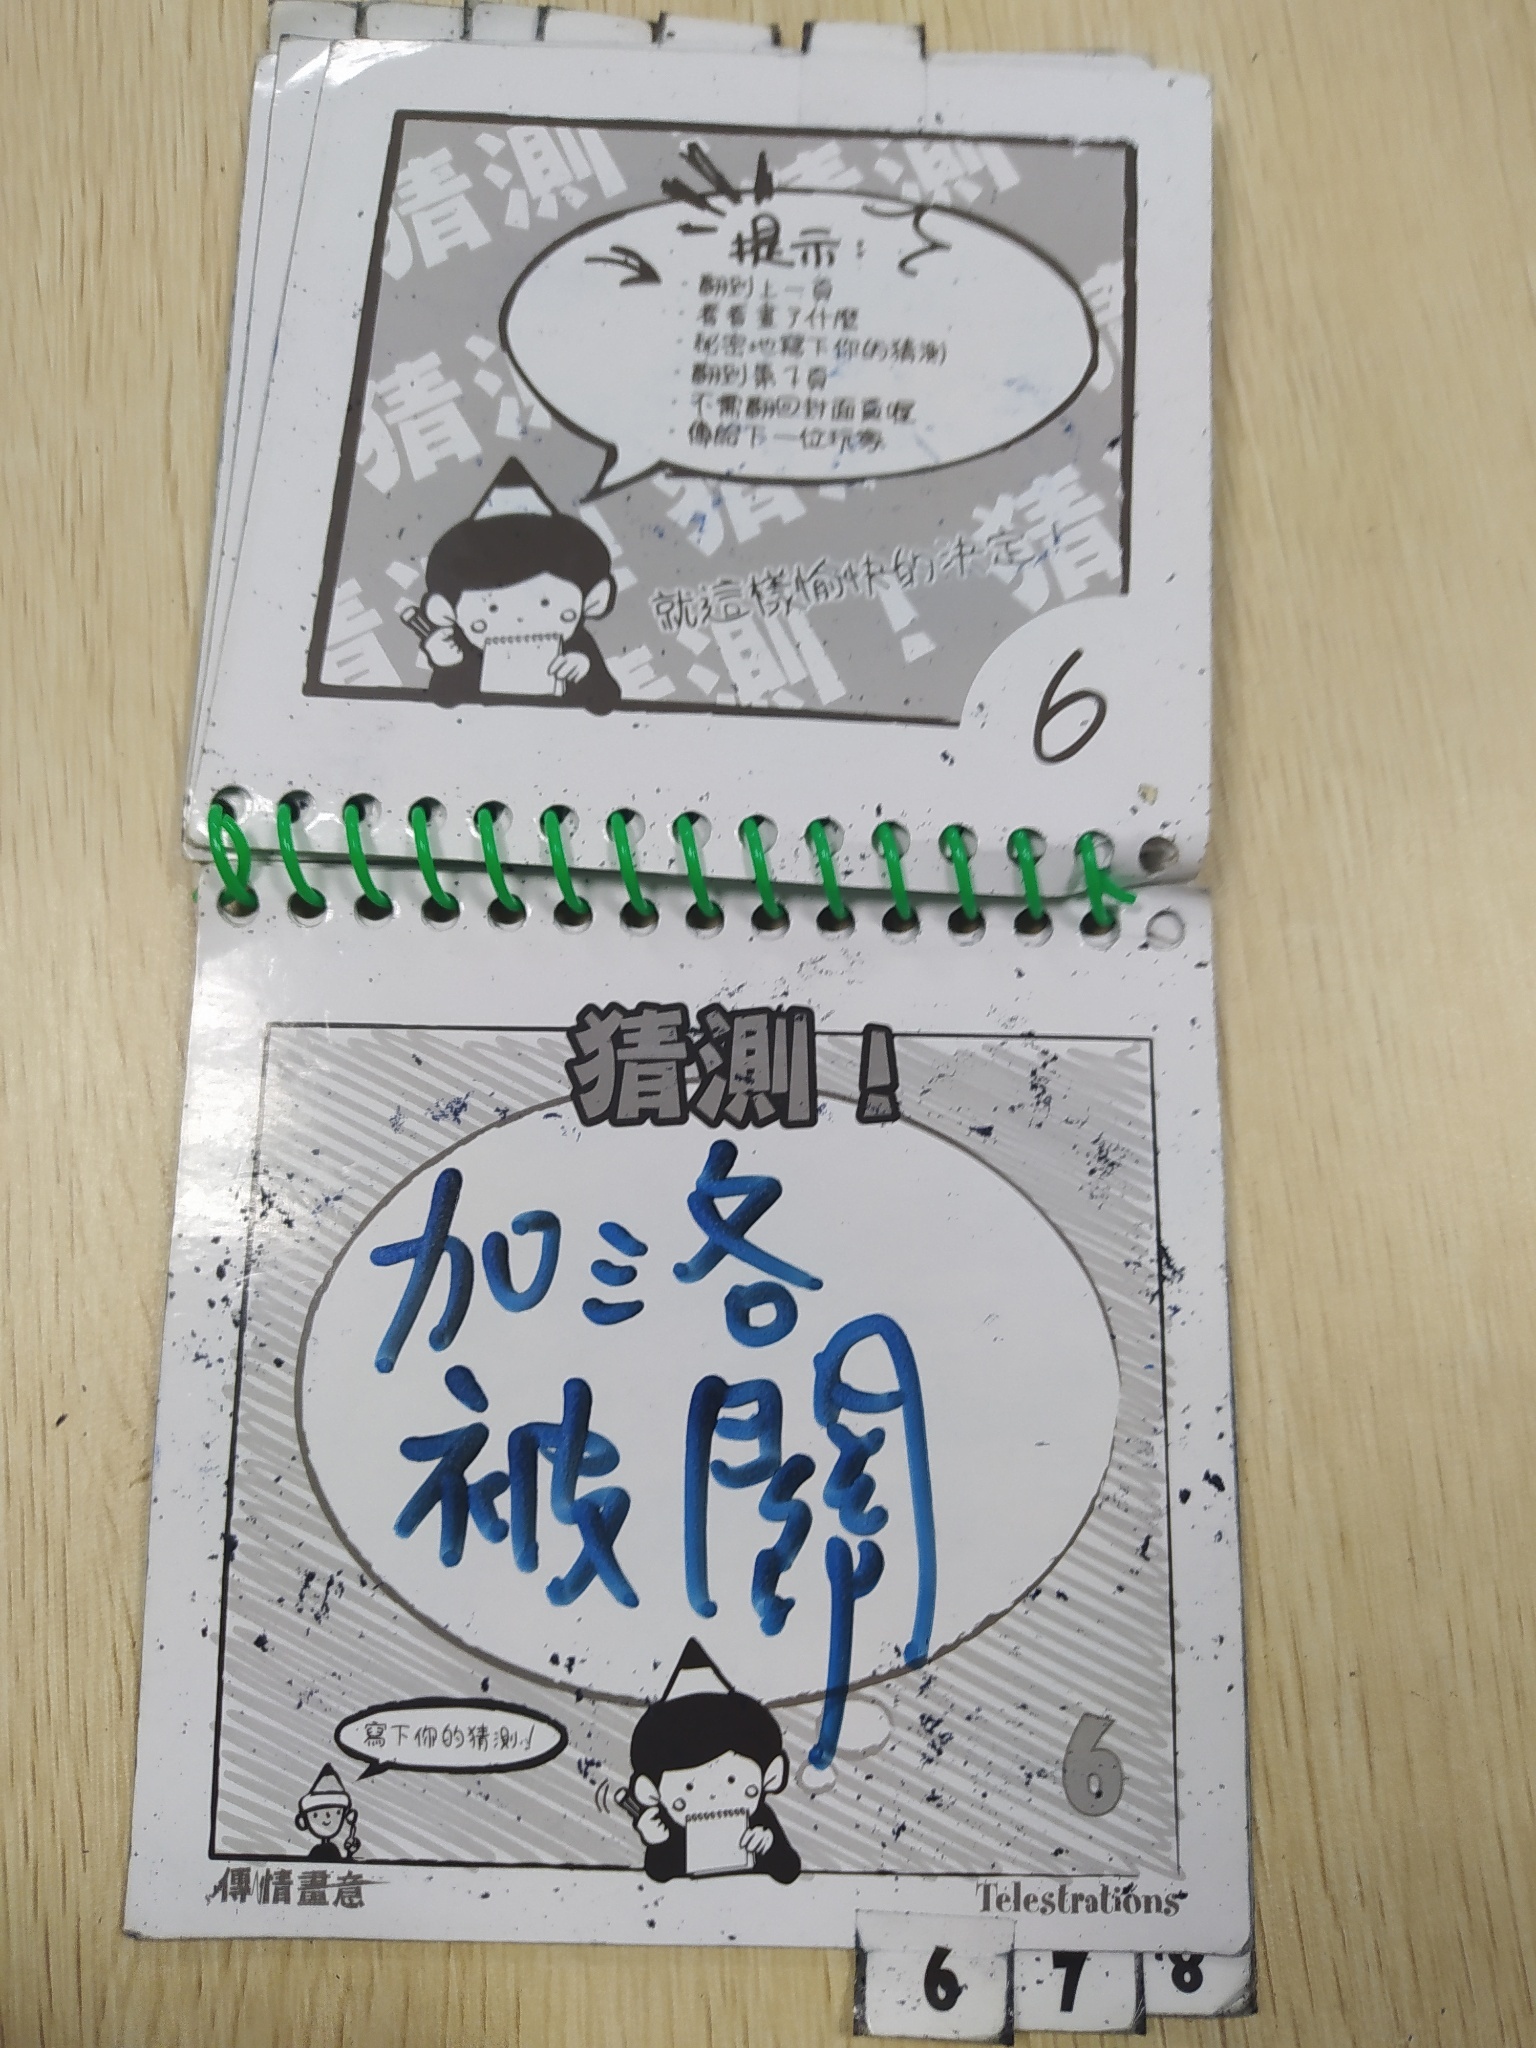 猜測
猜測
提示：
·翻到上一頁
·看看畫了什麼
·秘密地寫下你的猜測
·翻到第7頁
·不需翻回封面頁喔
·傳給下一位玩家
猜
猜
猜
就這樣愉快的決定！
測！
6
猜測！
加三洛
被關
寫下你的猜測！
6
傳情畫意
Telestrations
6 7 8